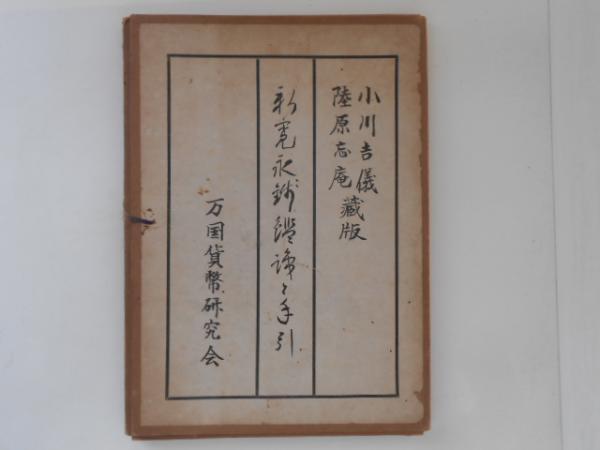 小川吉儀
陸原忘庵藏版
新寛永銭鑑識と手引
万国貨幣研究会